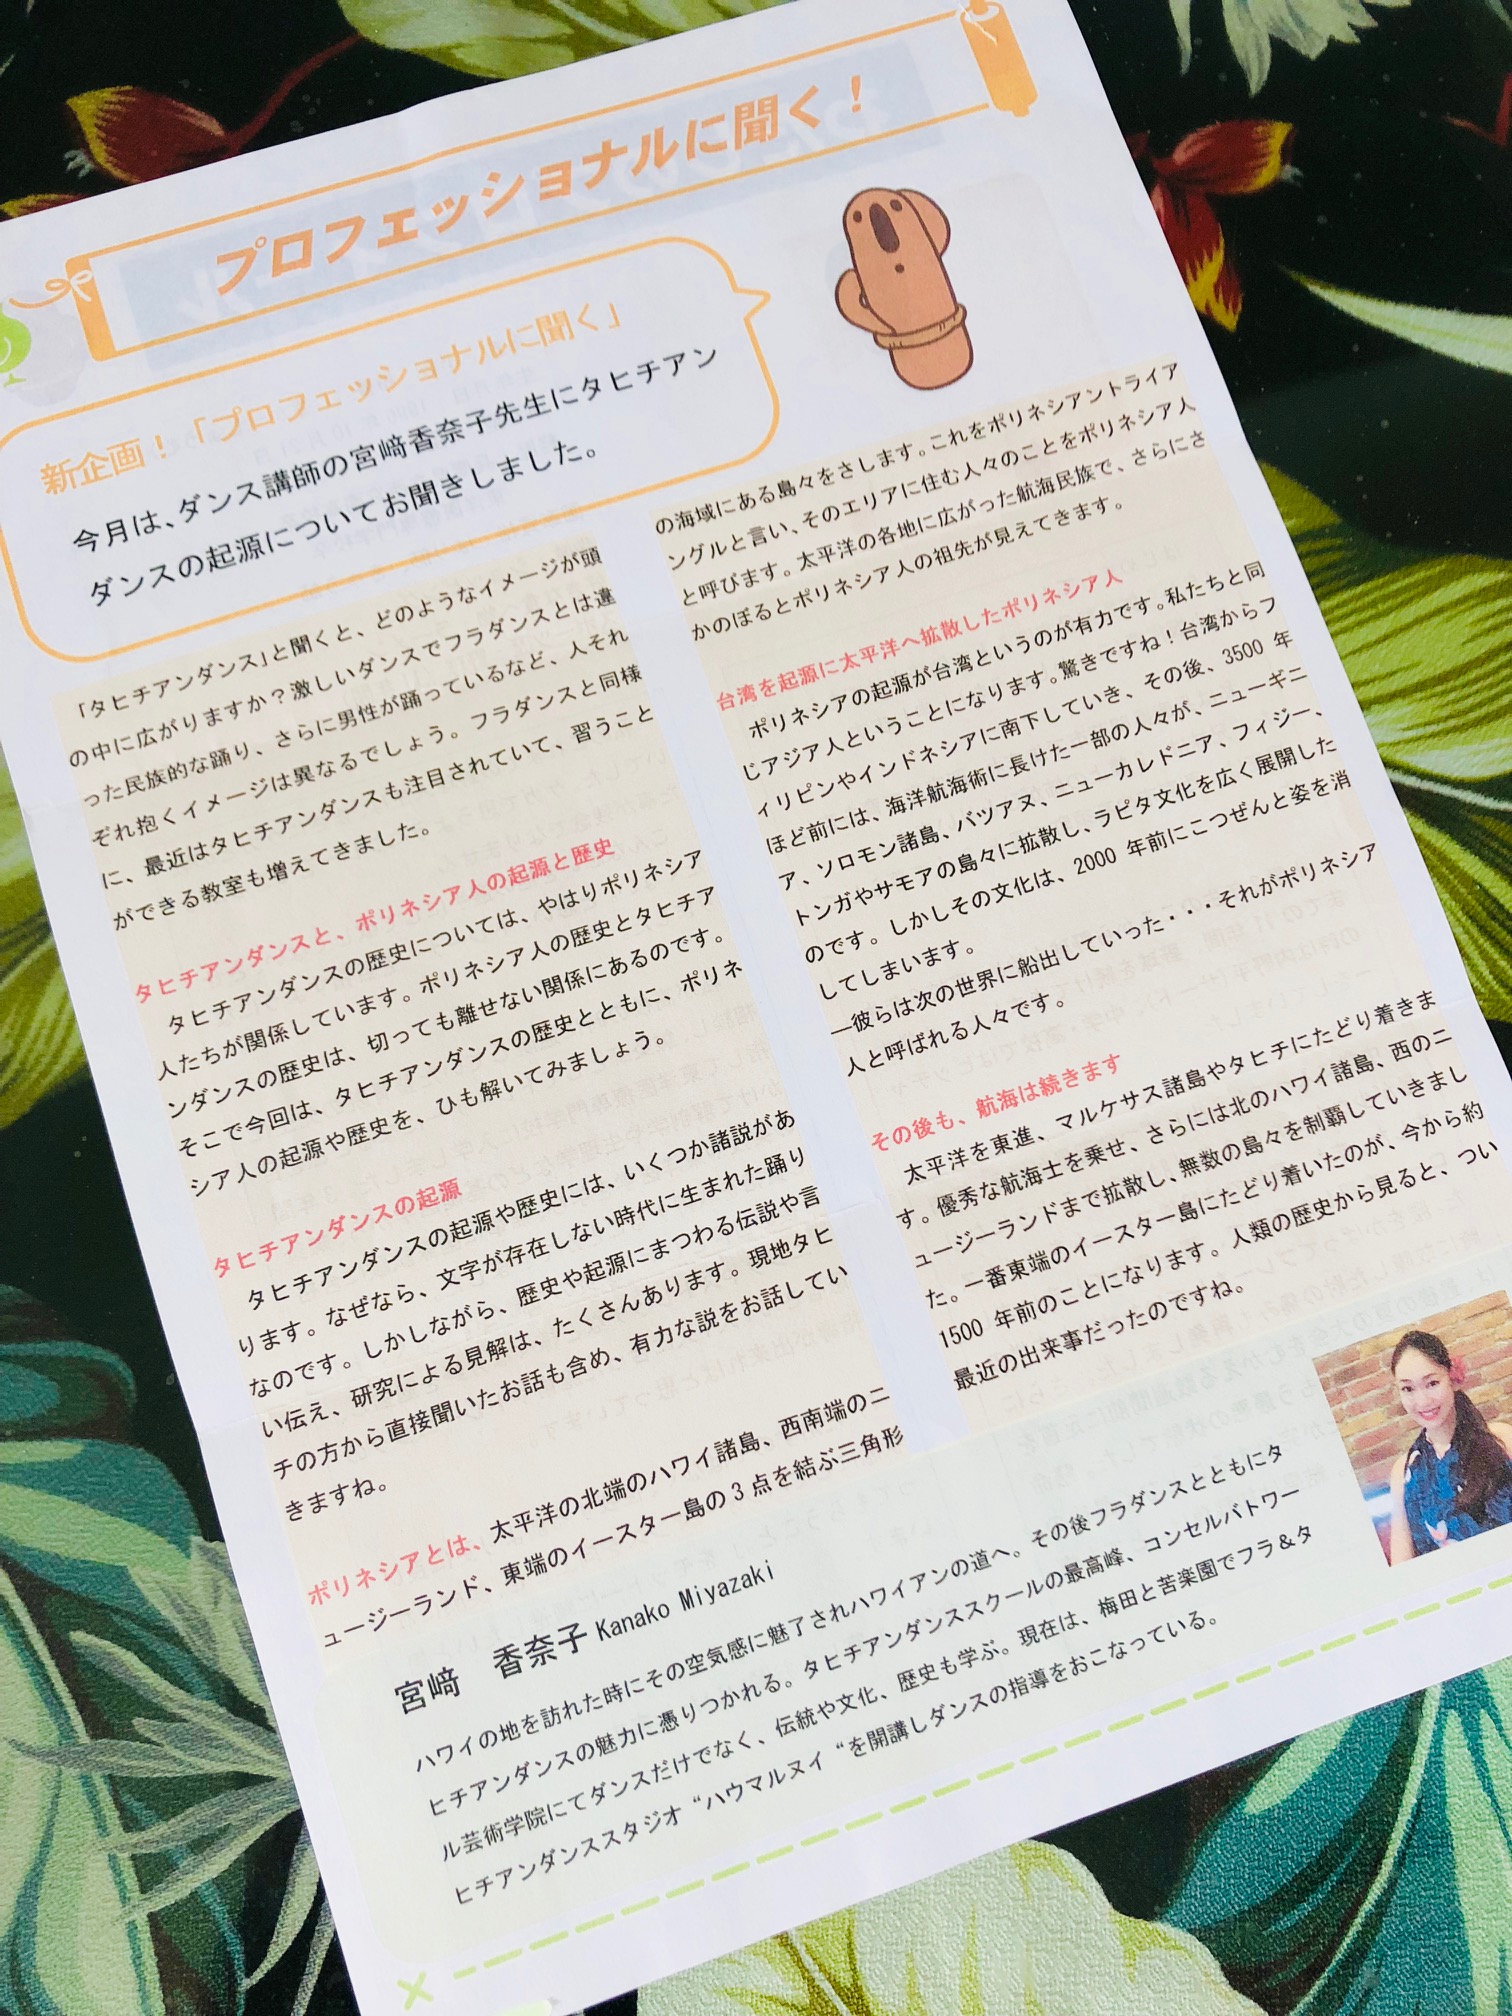 プロフェッショナルに聞く！
新企画！「プロフェッショナルに聞く」
今月は、ダンス講師の宮﨑香奈子先生にタヒチアン
ダンスの起源についてお聞きしました。
「タヒチアンダンス」と聞くと、どのようなイメージが頭
の中に広がりますか？激しいダンスでフラダンスとは違
った民族的な踊り、さらに男性が踊っているなど、人それ
ぞれ抱くイメージは異なるでしょう。フラダンスと同様
に、最近はタヒチアンダンスも注目されていて、習うこと
ができる教室も増えてきました。
タヒチアンダンスと、ポリネシア人の起源と歴史
タヒチアンダンスの歴史については、やはりポリネシア
人たちが関係しています。ポリネシア人の歴史とタヒチア
ンダンスの歴史は、切っても離せない関係にあるのです。
そこで今回は、タヒチアンダンスの歴史とともに、ポリネ
シア人の起源や歴史を、ひも解いてみましょう。
タヒチアンダンスの起源
タヒチアンダンスの起源や歴史には、いくつか諸説があ
ります。なぜなら、文字が存在しない時代に生まれた踊り
なのです。しかしながら、歴史や起源にまつわる伝説や言
い伝え、研究による見解は、たくさんあります。現地タヒ
チの方から直接聞いたお話も含め、有力な説をお話してい
きますね。
ポリネシアとは、太平洋の北端のハワイ諸島、西南端のニ
ュージーランド、東端のイースター島の3点を結ぶ三角形
の海域にある島々をさします。これをポリネシアントライア
ングルと言い、そのエリアに住む人々のことをポリネシア人
と呼びます。太平洋の各地に広がった航海民族で、さらにさ
かのぼるとポリネシア人の祖先が見えてきます。
台湾を起源に太平洋へ拡散したポリネシア人
ポリネシアの起源が台湾というのが有力です。私たちと同
じアジア人ということになります。驚きですね！台湾からフ
ィリピンやインドネシアに南下していき、その後、3500 年
ほど前には、海洋航海術に長けた一部の人々が、ニューギニ
ア、ソロモン諸島、バツアヌ、ニューカレドニア、フィジー、
トンガやサモアの島々に拡散し、ラピタ文化を広く展開した
のです。しかしその文化は、2000 年前にこつぜんと姿を消
してしまいます。
―彼らは次の世界に船出していった・・・それがポリネシア
人と呼ばれる人々です。
その後も、航海は続きます
太平洋を東進、マルケサス諸島やタヒチにたどり着きま
す。優秀な航海士を乗せ、さらには北のハワイ諸島、西のニ
ュージーランドまで拡散し、無数の島々を制覇していきまし
た。一番東端のイースター島にたどり着いたのが、今から約
1500 年前のことになります。人類の歴史から見ると、つい
最近の出来事だったのですね。
宮﨑　香奈子 Kanako Miyazaki
ハワイの地を訪れた時にその空気感に魅了されハワイアンの道へ。その後フラダンスとともにタ
ヒチアンダンスの魅力に憑りつかれる。タヒチアンダンススクールの最高峰、コンセルバトワー
ル芸術学院にてダンスだけでなく、伝統や文化、歴史も学ぶ。現在は、梅田と苦楽園でフラ＆タ
ヒチアンダンススタジオ“ハウマルヌイ“を開講しダンスの指導をおこなっている。